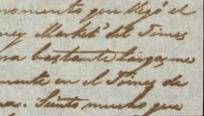 momento que llegó el
ney Market' del Times
na bastante larga, me
mente en el Times de
Siento mucho que